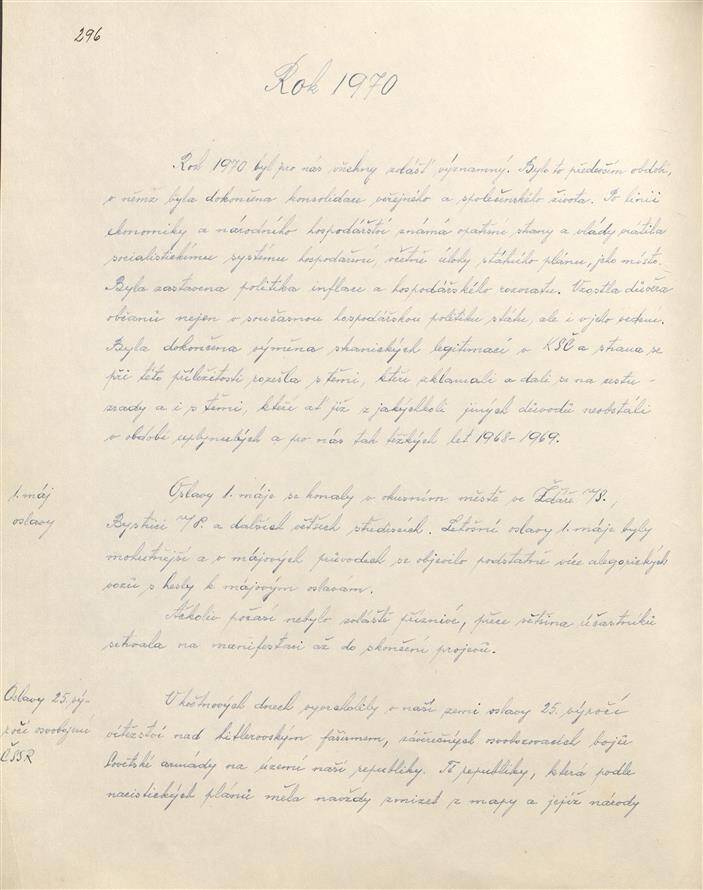 296
Rok 1970
Rok 1970 byl pro nás všechny zvlášť významný. Bylo to především období,
v němž byla dokončena konsolidace veřejného a společenského života. Po linii
ekonomiky a národního hospodářství známá opatření strany a vlády vrátila
socialistickému systému hospodaření, včetně úlohy státního plánu, jeho místo.
Byla zastavena politika inflace a hospodářského rozvratu. Vzrostla důvěra
občanů nejen v současnou hospodářskou politiku státu, ale i v jeho vedení.
Byla dokončena výměna stranických legitimací v KSČ a strana se
při této příležitosti rozešla s těmi, kteří zklamali a dali se na cestu
zrady a i s těmi, kteří ať již z jakýchkoli jiných důvodů neobstáli
v období uplynulých a pro nás tak těžkých let 1968-1969.
1. máj
oslavy
Oslavy 1. máje se konaly v okresním městě ve Žďáře n/S.,
Bystřici n/P. a dalších větších střediscích. Letošní oslavy 1. máje byly
mohutnější a v májových průvodech se objevilo podstatně více alegorických
vozů s hesly k májovým oslavám.
Ačkoliv počasí nebylo zvláště příznivé, přece většina účastníků
setrvala na manifestaci až do skončení projevů.
Oslavy 25. vý-
ročí osvobození
ČSSR
V květnových dnech vyvrcholily v naší zemi oslavy 25. výročí
vítězství nad hitlerovským fašismem, závěrečných osvobozovacích bojů
Sovětské armády na území naší republiky. Té republiky, která podle
nacistických plánů měla navždy zmizet z mapy a jejíž národy